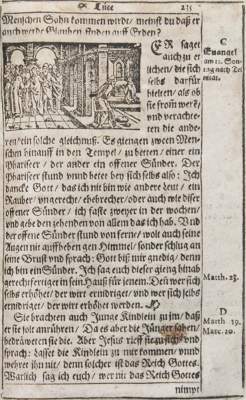 Luce 235
Menschen Sohn kommen wirdt/ meinst du daß er
auch werde Glauben finden auff Erden?
C
Euangel
am 11. Son-
tag nach Te
nitat.
ER saget
auch zu e
lichen/ die sich
selbs darfür
hielten/ als ob
sie from wern/
vnd verachte-
ten die ande-
ren/ ein solche gleichnuß. Es giengen zween Men-
schen hinauff in den Tempel/ zu betten/ einer ein
Phariseer/ der ander ein offener Sünder. Der
Phariseer stund vnnd betet bey sich selbs also: Ich
dancke Gott/ das ich nit bin wie andere Leut/ ein
Rauber/ vngerecht/ ehebrecher/ oder auch wie diser
offener Sünder/ ich faste zweyer in der wochen/
vnd gebe den zehenden von allem das ich hab. Vnd
der offene Sünder stund von fern/ wolt auch seine
Augen nit auffheben gen Himmel/ sonder schlug an
seine Brust vnd sprach: Gott biß mir gnedig/ denn
ich bin ein Sünder. Ich sag euch dieser gieng hinab
gerechtfertiget in sein Hauß für jenem. Denn wer sich
selbs erhöhet/ der wirt ernidriget/ vnd wer sich selbs
ernidriget/ der wirt erhöhet werden.
Matth. 23.
Sie brachten auch Junge Kindlein zu jm/ daß
er sie solt anrühren/ Da es aber die Jünger sahen/
bedräweten sie die. Aber Jesus rieff sie zu sich vnd
sprach: Lasset die Kindlein zu mir kommen/ vnnd
wehret jhn nit/ denn solcher ist das Reich Gottes.
Warlich sag ich euch/ wer nit das Reich Gottes
D
Matth 19.
Marc. 10.
nimpt